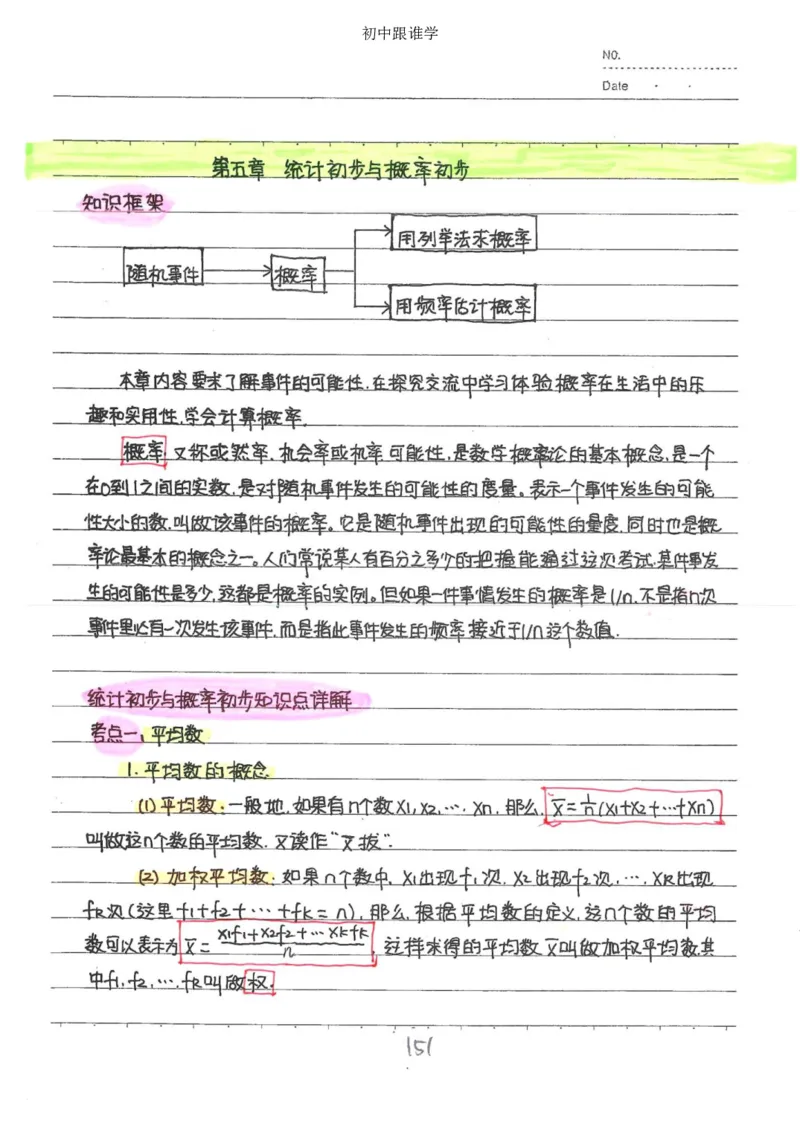 初中跟谁学
NO.
Date
第五章 统计初步与概率初步
知识框架
用列举法求概率
随机事件
概率
用频率估计概率
本章内容要求了解事件的可能性,在探究交流中学习体验概率在生活中的乐
趣和实用性,学会计算概率.
概率,又称或然率、机会率或机率、可能性,是数学概率论的基本概念,是一个
在0到1之间的实数,是对随机事件发生的可能性的度量。表示一个事件发生的可能
性大小的数,叫做该事件的概率。它是随机事件出现的可能性的量度,同时也是概
率论最基本的概念之一。人们常说某人有百分之多少的把握能通过这次考试,某件事发
生的可能性是多少,这都是概率的实例。但如果一件事情发生的概率是1/n,不是指n次
事件里必有一次发生该事件,而是指此事件发生的频率接近于1/n这个数值.
统计初步与概率初步知识点详解
考点一、平均数
1.平均数的概念
(1)平均数:一般地,如果有n个数x1,x2,…,xn,那么,x̄=1/n(x1+x2+…+xn)
叫做这n个数的平均数,x̄读作“x拔”.
(2)加权平均数:如果n个数中,x1出现f1次,x2出现f2次,…,xk出现
fk次(这里f1+f2+…+fk=n),那么,根据平均数的定义,这n个数的平均
数可以表示为x̄=(x1f1+x2f2+…xkfk)/n,这样求得的平均数x̄叫做加权平均数,其
中f1,f2,…,fk叫做权.
151